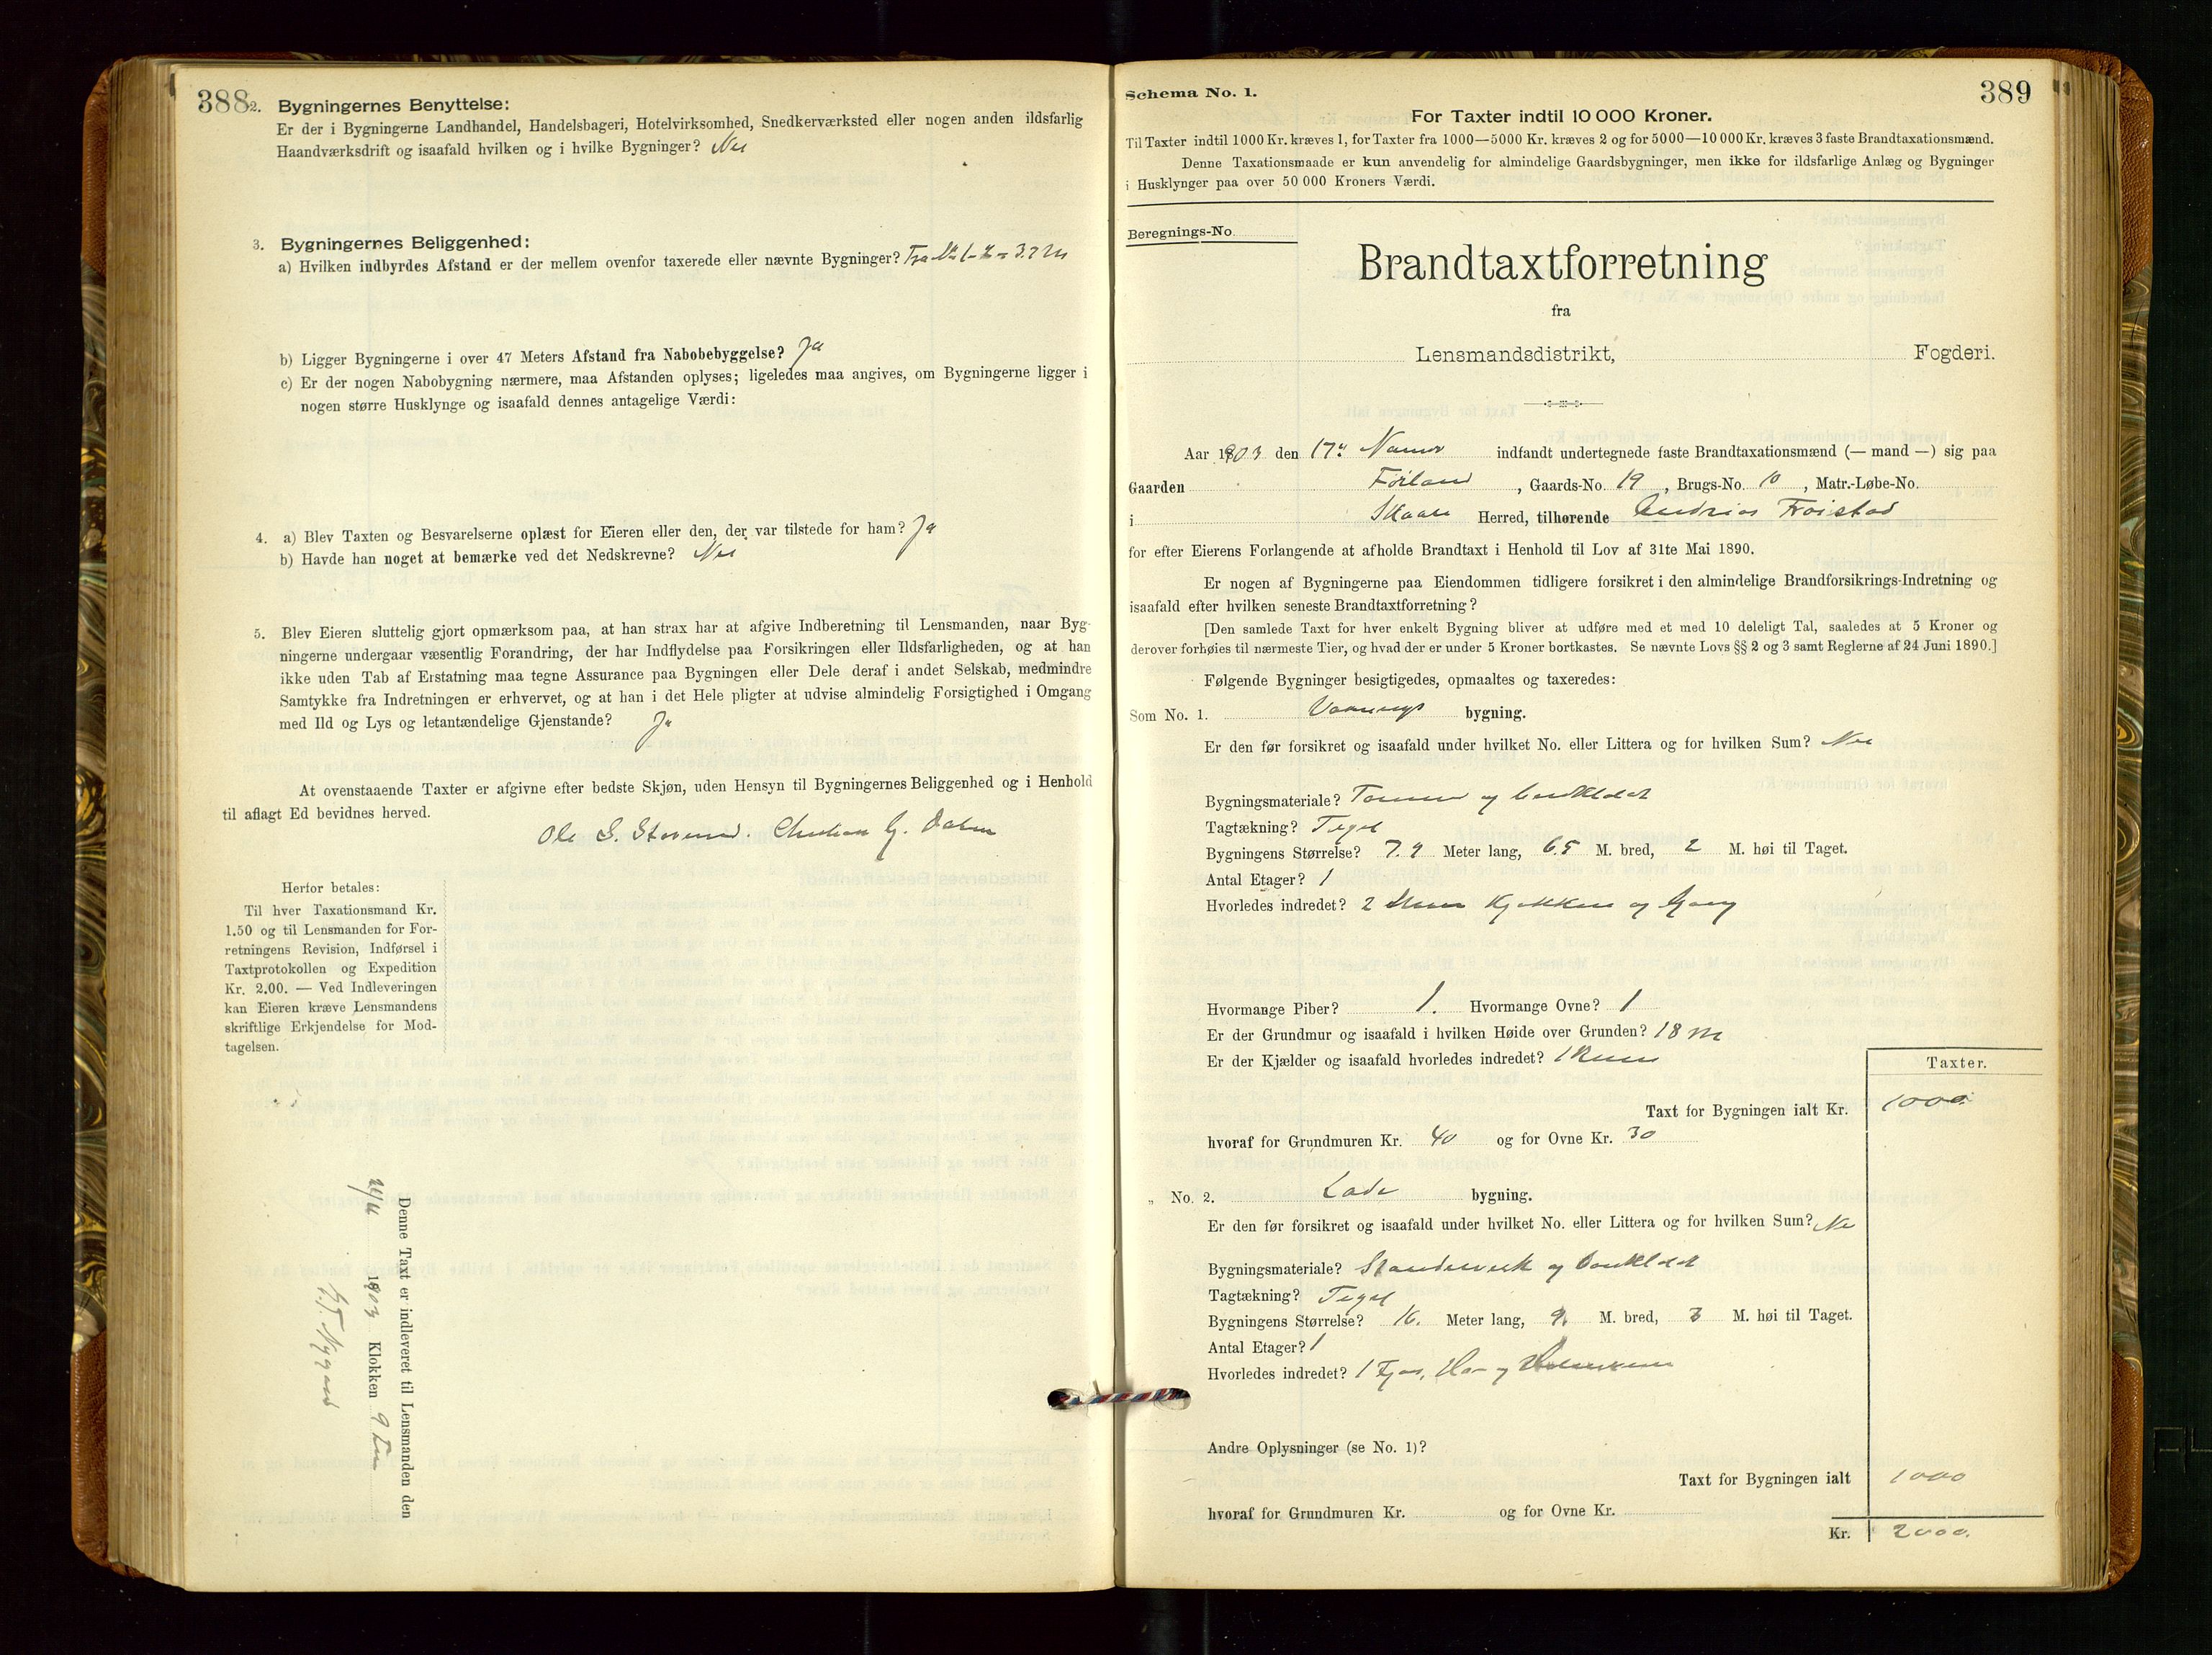 388
2. Bygningernes Benyttelse:
Er der i Bygningerne Landhandel, Handelsbageri, Hotelvirksomhed, Snedkerværksted eller nogen anden ildsfarlig
Haandværksdrift og isaafald hvilken og i hvilke Bygninger? Nei
3. Bygningernes Beliggenhed:
a) Hvilken indbyrdes Afstand er der mellem ovenfor taxerede eller nævnte Bygninger? Fra No 1-2 = 37 M
b) Ligger Bygningerne i over 47 Meters Afstand fra Nabobebyggelse? Ja
c) Er der nogen Nabobygning nærmere, maa Afstanden oplyses; ligeledes maa angives, om Bygningerne ligger i
nogen større Husklynge og isaafald dennes antagelige Værdi:
4. a) Blev Taxten og Besvarelserne oplæst for Eieren eller den, der var tilstede for ham? Ja
b) Havde han noget at bemærke ved det Nedskrevne? Nei
5. Blev Eieren sluttelig gjort opmærksom paa, at han strax har at afgive Indberetning til Lensmanden, naar Byg-
ningerne undergaar væsentlig Forandring, der har Indflydelse paa Forsikringen eller Ildsfarligheden, og at han
ikke uden Tab af Erstatning maa tegne Assurance paa Bygningen eller Dele deraf i andet Selskab, medmindre
Samtykke fra Indretningen er erhvervet, og at han i det Hele pligter at udvise almindelig Forsigtighed i Omgang
med Ild og Lys og letantændelige Gjenstande? Ja
At ovenstaaende Taxter er afgivne efter bedste Skjøn, uden Hensyn til Bygningernes Beliggenhed og i Henhold
til aflagt Ed bevidnes herved.
Ole S. Christian G.
Herfor betales:
Til hver Taxationsmand Kr.
1.50 og til Lensmanden for For-
retningens Revision, Indførsel i
Taxtprotokollen og Expedition
Kr. 2.00. — Ved Indleveringen
kan Eieren kræve Lensmandens
skriftlige Erkjendelse for Mod-
tagelsen.
Denne Taxt er indleveret til Lensmanden den
1903 Klokken 9
389
Schema No. 1.
For Taxter indtil 10 000 Kroner.
Til Taxter indtil 1000 Kr. kræves 1, for Taxter fra 1000—5000 Kr. kræves 2 og for 5000—10 000 Kr. kræves 3 faste Brandtaxationsmænd.
Denne Taxationsmaade er kun anvendelig for almindelige Gaardsbygninger, men ikke for ildsfarlige Anlæg og Bygninger
i Husklynger paa over 50 000 Kroners Værdi.
Beregnings-No.
Brandtaxtforretning
fra
Lensmandsdistrikt, Fogderi.
Aar 1903 den 17de indfandt undertegnede faste Brandtaxationsmænd (— mand —) sig paa
Gaarden Førland, Gaards-No. 19, Brugs-No. 10, Matr.-Løbe-No.
i Skaare Herred, tilhørende Andrias Frøistad
for efter Eierens Forlangende at afholde Brandtaxt i Henhold til Lov af 31te Mai 1890.
Er nogen af Bygningerne paa Eiendommen tidligere forsikret i den almindelige Brandforsikrings-Indretning og
isaafald efter hvilken seneste Brandtaxtforretning?
[Den samlede Taxt for hver enkelt Bygning bliver at udføre med et med 10 deleligt Tal, saaledes at 5 Kroner og
derover forhøies til nærmeste Tier, og hvad der er under 5 Kroner bortkastes. Se nævnte Lovs §§ 2 og 3 samt Reglerne af 24 Juni 1890.]
Følgende Bygninger besigtigedes, opmaaltes og taxeredes:
Som No. 1. Vaanings bygning.
Er den før forsikret og isaafald under hvilket No. eller Littera og for hvilken Sum? Nei
Bygningsmateriale? Tømmer og bordklædt
Tagtækning? Tegel
Bygningens Størrelse? 7.9 Meter lang, 6.5 M. bred, 2 M. høi til Taget.
Antal Etager? 1
Hvorledes indredet? 2 Kjøkken og Gang
Hvormange Piber? 1. Hvormange Ovne? 1
Er der Grundmur og isaafald i hvilken Høide over Grunden? 18 M
Er der Kjælder og isaafald hvorledes indredet? 1 Rum
Taxter.
Taxt for Bygningen ialt Kr. 1000
hvoraf for Grundmuren Kr. 40 og for Ovne Kr. 30
„ No. 2. Lade bygning.
Er den før forsikret og isaafald under hvilket No. eller Littera og for hvilken Sum? Nei
Bygningsmateriale? Standerverk og bordklædt
Tagtækning? Tegel
Bygningens Størrelse? 16. Meter lang, 9. M. bred, 3 M. høi til Taget.
Antal Etager? 1
Hvorledes indredet? 1 Fjøs,
Andre Oplysninger (se No. 1)?
Taxt for Bygningen ialt 1000
hvoraf for Grundmuren Kr. og for Ovne Kr.
Kr. 2000.